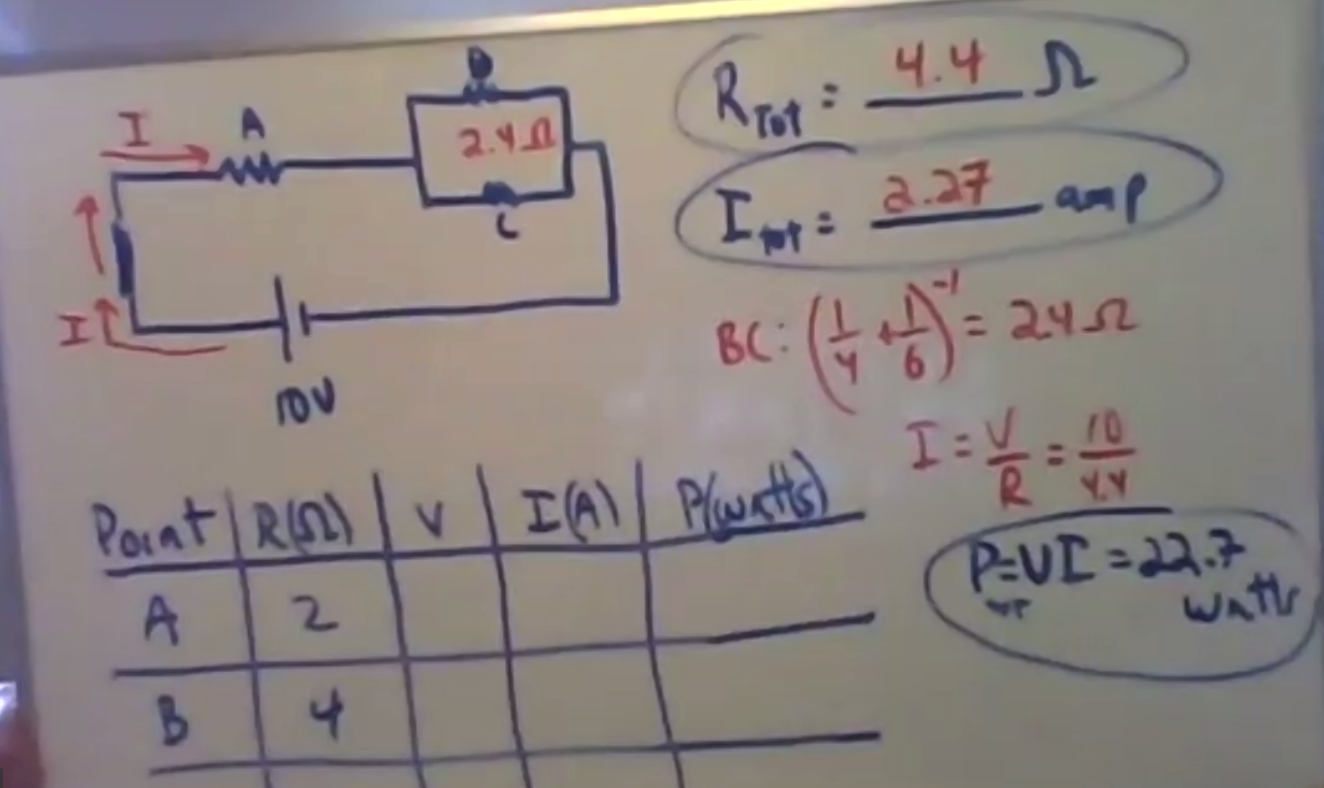 B
I A
2.4Ω
C
I
10V
R_Tot = 4.4 Ω
I_Tot = 2.27 amp
BC: (1/4 + 1/6)^-1 = 2.4Ω
I = V/R = 10/4.4
P_Tot = VI = 22.7
watts
Point R(Ω) V I(A) P(watts)
A 2
B 4